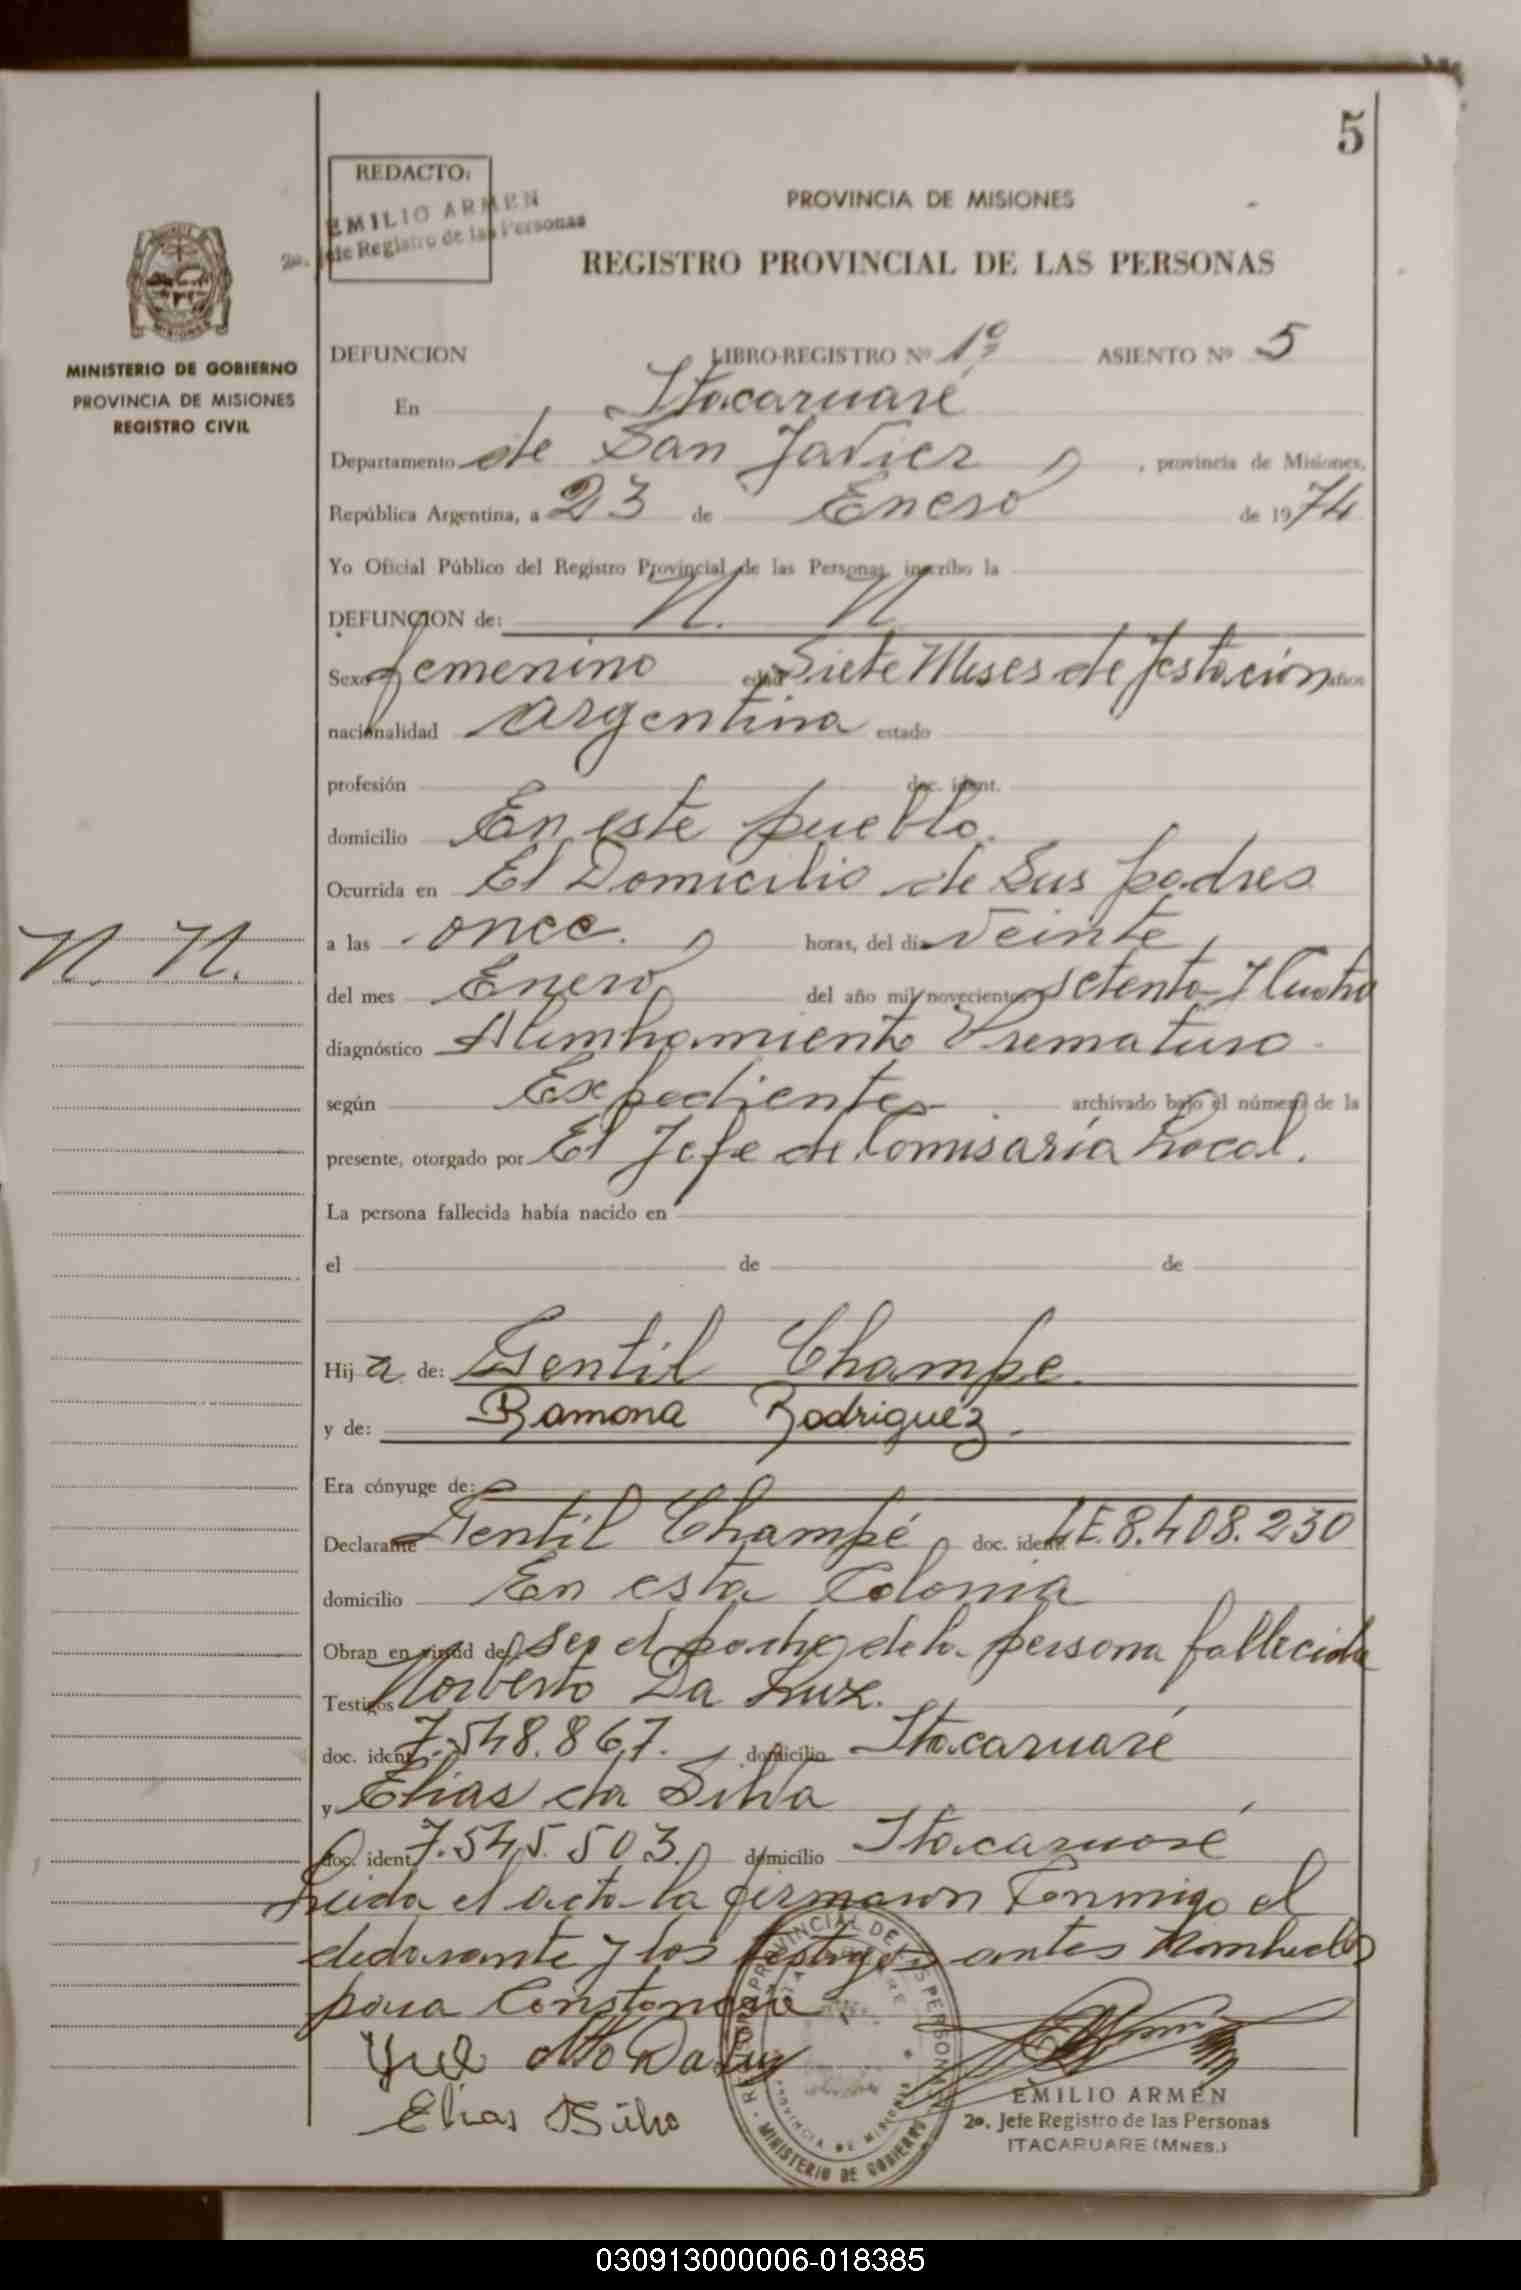 5
REDACTO:
EMILIO ARMEN
2º. Jefe Registro de las Personas
PROVINCIA DE MISIONES
REGISTRO PROVINCIAL DE LAS PERSONAS
MINISTERIO DE GOBIERNO
PROVINCIA DE MISIONES
REGISTRO CIVIL
DEFUNCION LIBRO-REGISTRO Nº 1º ASIENTO Nº 5
En Itacaruaré
Departamento de San Javier, provincia de Misiones,
República Argentina, a 23 de Enero de 1974
Yo Oficial Público del Registro Provincial de las Personas, inscribo la
DEFUNCION de: N. N
Sexo femenino edad Siete Meses de Jestación años
nacionalidad argentina estado
profesión doc. ident.
domicilio En este pueblo.
Ocurrida en El Domicilio de Sus padres
N. N.
a las once. horas, del día Veinte
del mes Enero del año mil novecientos setenta y Cuatro
diagnóstico Alumbramiento Prematuro
según Expediente archivado bajo el número de la
presente, otorgado por El Jefe de Comisaría Local.
La persona fallecida había nacido en
el de de
Hija de: Gentil Champe.
y de: Ramona Rodriguéz.
Era cónyuge de:
Declarante Gentil Champé doc. ident. LE.8.408.230
domicilio En esta Colonia
Obran en virtud de ser el padre de la persona fallecida
Testigos Norberto Da Luz.
doc. ident. 7.548.867. domicilio Itacaruaré
y Elias da Silva
doc. ident. 7.545.503. domicilio Itacaruaré
Leida el acta la firmaron Conmigo el
declarante y los testigos antes Nombrados
para Constancia
Elias
REGISTRO PROVINCIAL DE LAS PERSONAS
PROVINCIA DE MISIONES
MINISTERIO DE GOBIERNO
EMILIO ARMEN
2º. Jefe Registro de las Personas
ITACARUARE (MNES.)
030913000006-018385